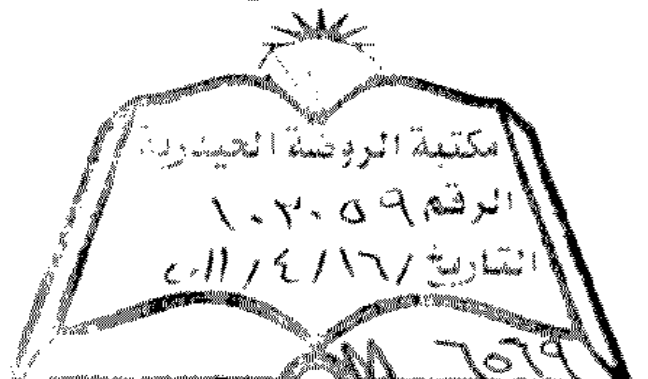 مكتبة الروضة الحيدرية
الرقم ١٠٢٠٥٩
التاريخ ١٦ / ٤ / ٢٠١١
٦٥٦٩